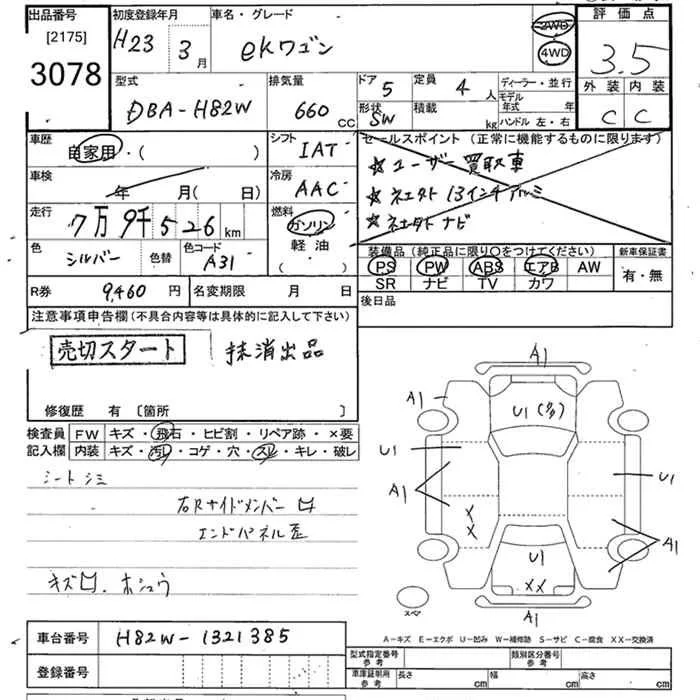 出品番号 初度登録年月 車名・グレード 評価点
[2175]
3078
H23年 3月 ekワゴン 2WD 4WD 3.5
型式 排気量 ドア 5 定員 4人 ディーラー・並行 外装 内装
DBA-H82W 660cc 形状 SW 積載 kg モデル年式 年式 ハンドル 左・右 C C
車歴 自家用・( ) シフト IAT セールスポイント (正常に機能するものに限ります)
☆ユーザー買取車
車検 年 月(日) 冷房 AAC
☆ネエクト 13インチアルミ
☆ネエクト ナビ
走行 7万9千526km 燃料 ガソリン 軽油 ( )
色 シルバー 色替 色コード A31
装備品 (純正品に限り○をつけてください) 新車保証書
PS PW ABS エアB AW 有・無
SR ナビ TV カワ
R券 9,460円 名変期限 月 日 後日品
注意事項申告欄(不具合内容等は具体的に記入して下さい)
売切スタート 抹消出品
修復歴 有 〔箇所 〕
検査員 FW キズ・飛石・ヒビ割・リペア跡・×要
記入欄 内装 キズ・汚レ・コゲ・穴・スレ・キレ・破レ
シートシミ
右Rサイドメンバー凹
エンドパネル歪
キズ凹.ホシュウ
A1
A1 U1(多)
U1 U1
A1 XX A1
U1
XX
スペア A1
A－キズ E－エクボ U－凹み W－補修跡 S－サビ C－腐食 XX－交換済
車台番号 H82W-1321385
型式指定番号 参考 類別区分番号 参考
登録番号
車庫証明用 参考 長さ cm 幅 cm 高さ cm